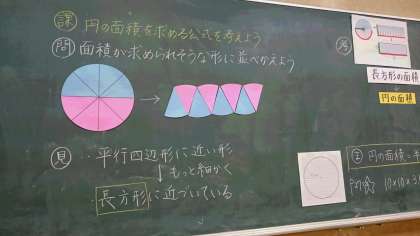 課 円の面積を求める公式を考えよう
問 面積が求められそうな形に並べかえよう
見 平行四辺形に近い形
もっと細かく
長方形に近づいている
長方形の面積
円の面積
円の面積
10×10×3